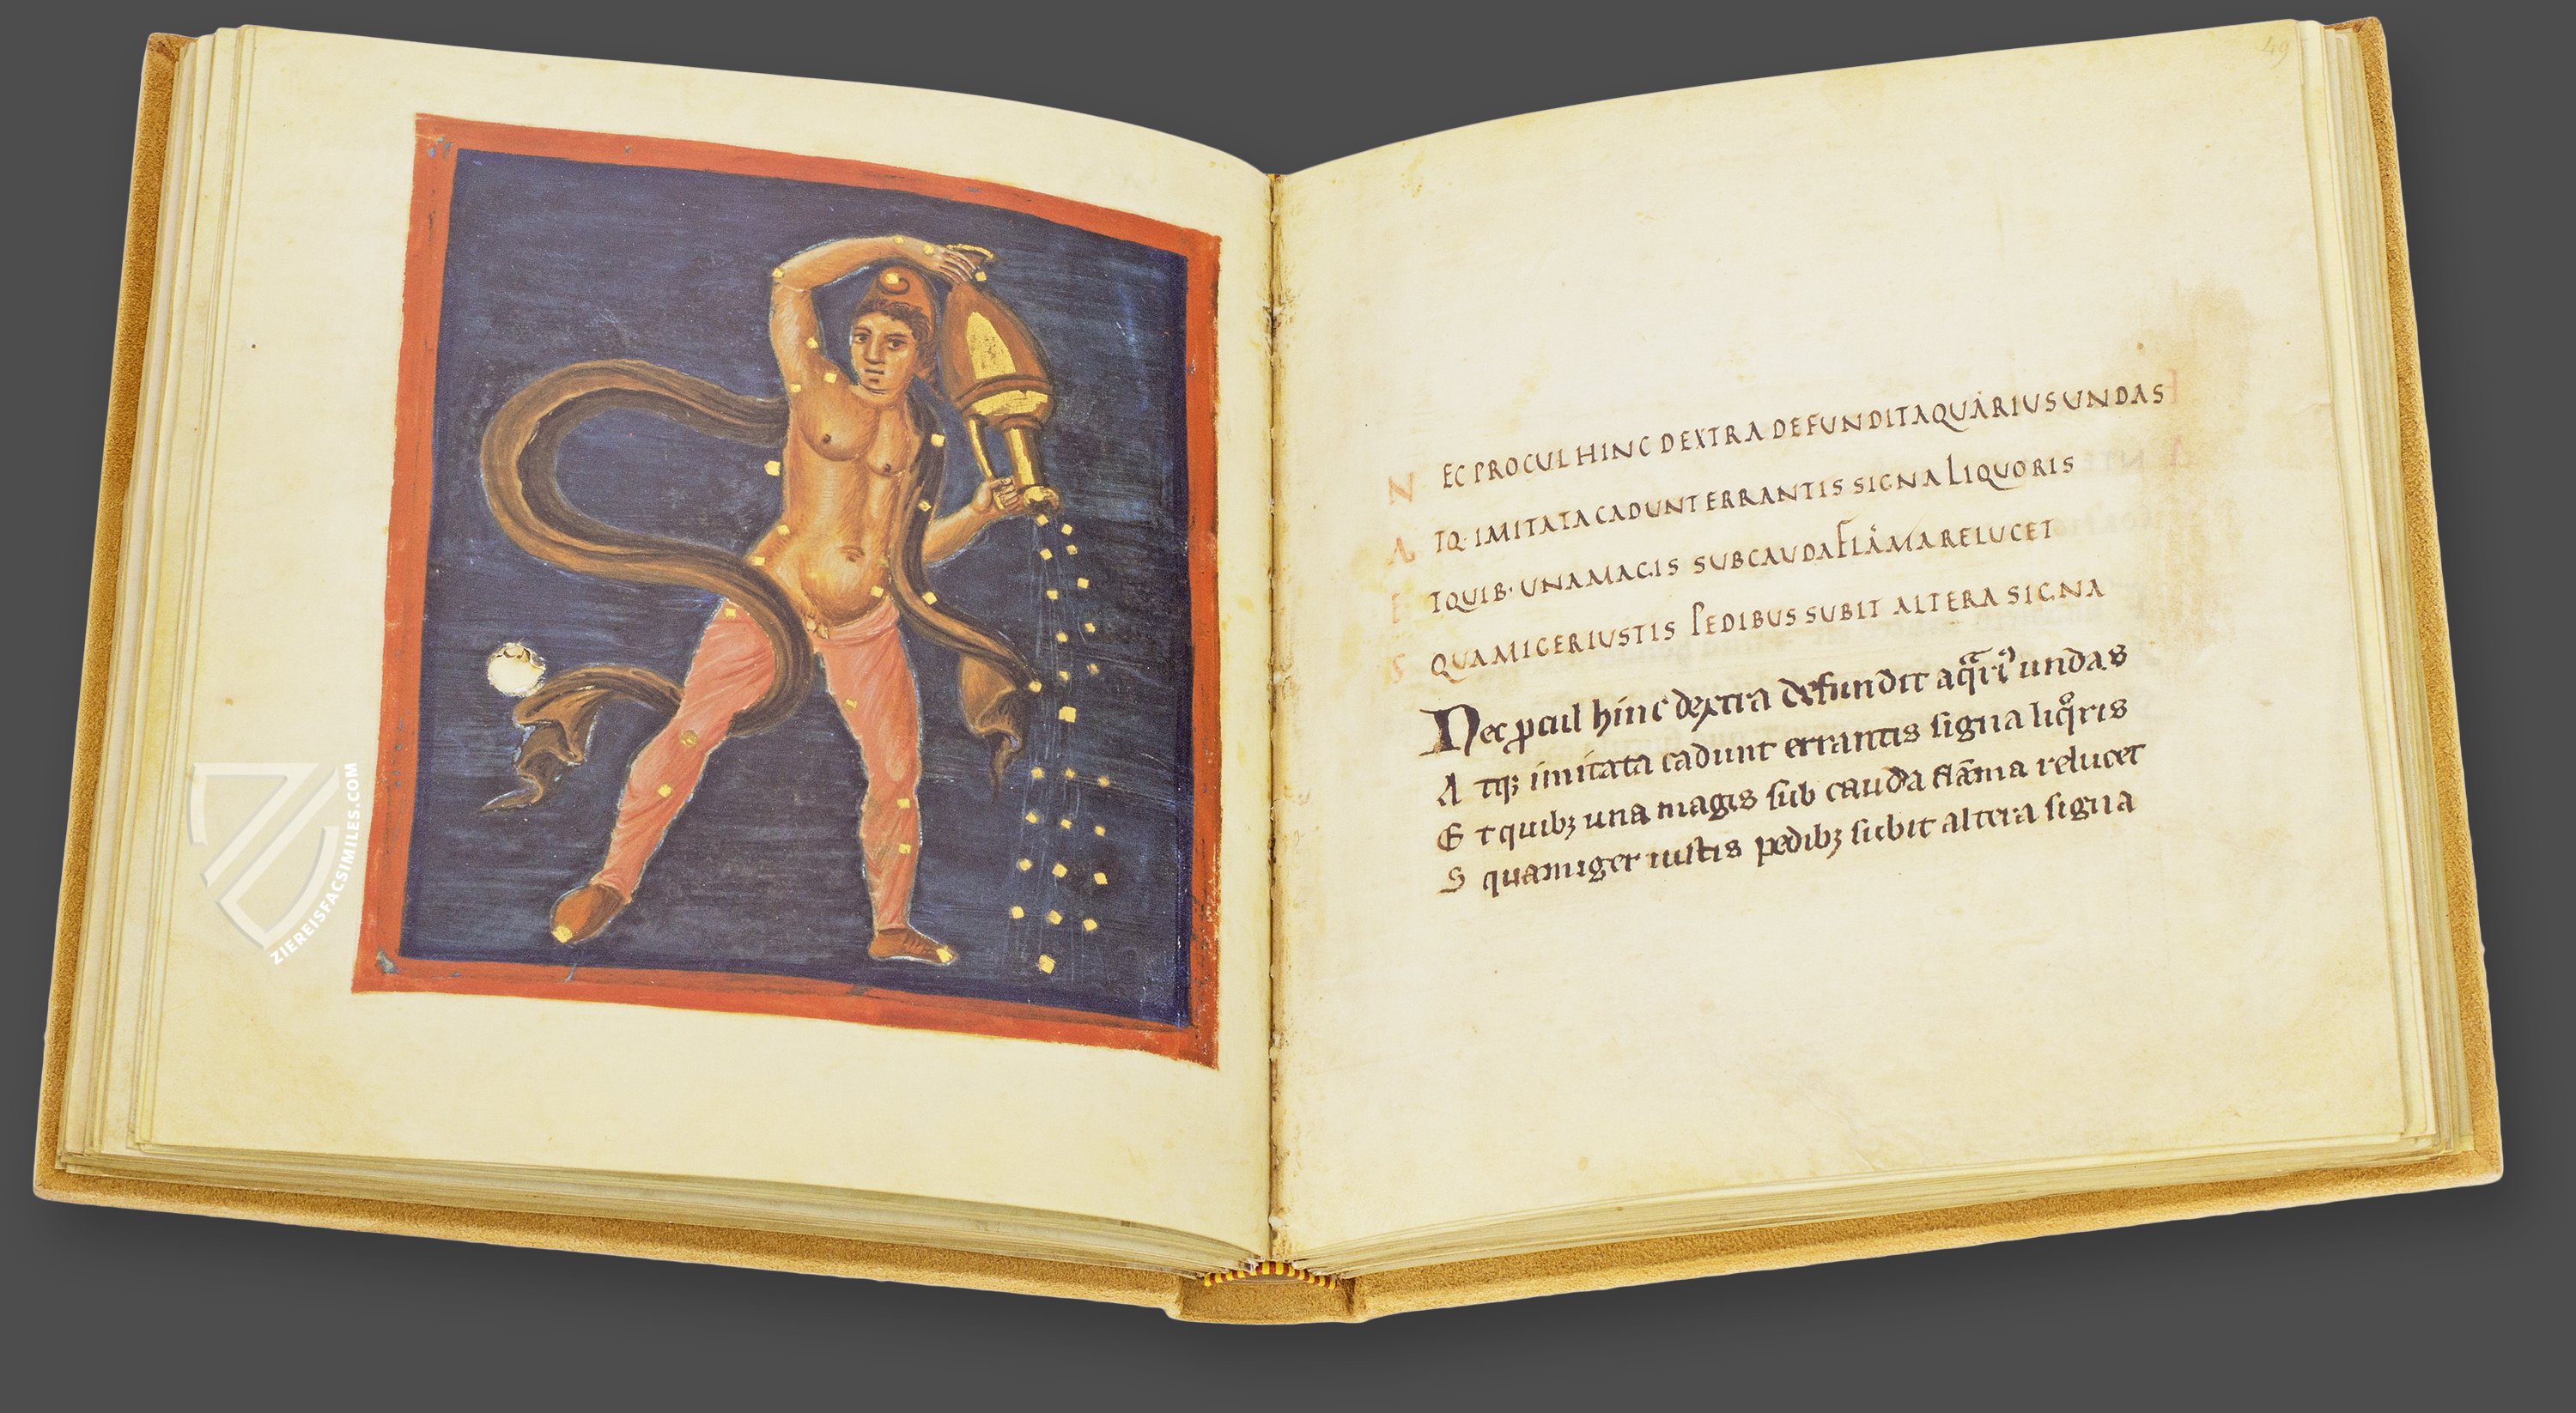 ZIEREISFACSIMILES.COM
49
N EC PROCUL HINC DEXTRA DEFUNDIT AQUARIUS UNDAS
A TQ· IMITATA CADUNT ERRANTIS SIGNA LIQUORIS
E TQUIB· UNA MAGIS SUB CAUDA FLāMA RELUCET
S QUAMIGER IUSTIS PEDIBUS SUBIT ALTERA SIGNA
Nec ꝓcul hinc dextra defundit aq̄riꝰ undas
A tqꝫ imitata cadunt errantis signa liqͦris
E t quibꝫ una magis sub cauda flāma relucet
S quamiger iustis pedibꝫ subit altera signa